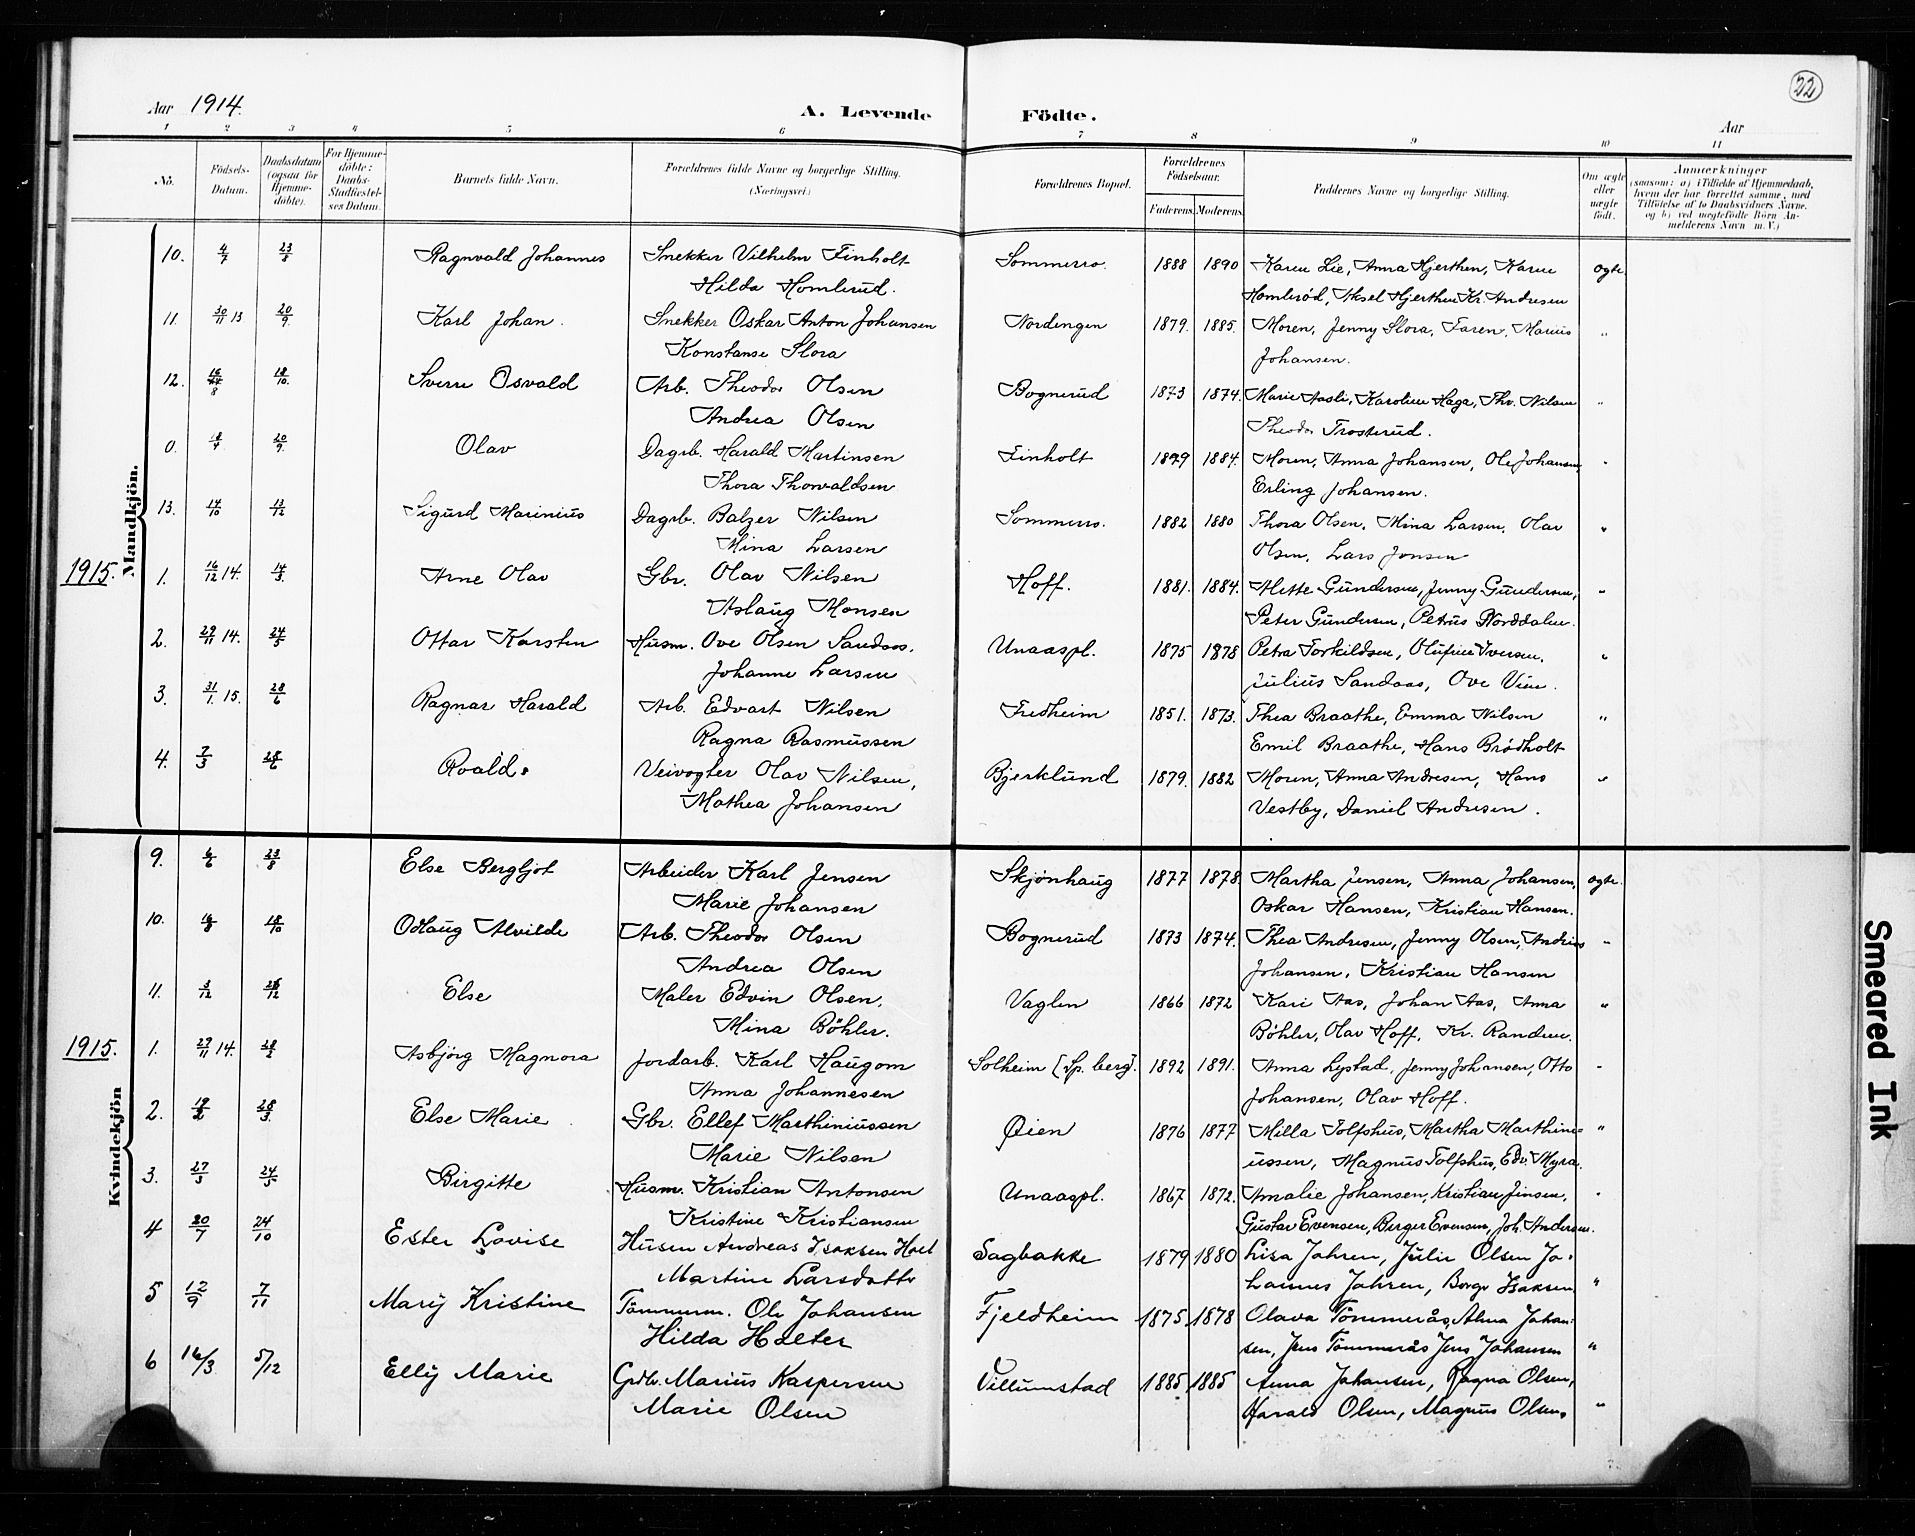 22
Aar 1914. A. Levende Födte. Aar
1 2 3 4 5 6 7 8 9 10 11
No. Födsels-Datum. Daabsdatum (ogsaa for Hjemme-döbte). For Hjemme-döbte: Daabs-Stadfæstel-ses Datum. Barnets fulde Navn. Forældrenes fulde Navne og borgerlige Stilling. (Næringsvei) Forældrenes Bopæl. Forældrenes Födselsaar. Faderens. Moderens. Faddernes Navne og borgerlige Stilling. Om ægte eller uægte födt. Anmærkninger (saasom: a) i Tilfælde af Hjemmedaab, hvem der har forrettet samme, med Tilföielse af to Daabsvidners Navne. og b) ved uægtefödte Börn An-melderens Navn m.V.)
Mandkjön.
10. 4/7 23/8 Ragnvald Johannes Snekker Vilhelm Finholt Sommerro. 1888 1890 Karen Lie, Anna Hjerthen, Karen ægte.
Hilda Homlerud. Homleröd, Aksel Hjerthen Kr. Andresen
11. 30/11 13 20/9. Karl Johan. Snekker Oskar Anton Johansen Nordengen 1879. 1885. Moren, Jenny Slora, Faren, Marius "
Konstanse Slora Johansen.
12. 18/10. Sverre Osvald Arb. Theodor Olsen Bognerud 1873 1874. Marie Aasli, Karoline Haga, Thv. Nilsen "
Andrea Olsen Theodor Trosterud.
0. 18/4 20/9. Olav Dagrb. Harald Martinsen Finholt 1884. Moren, Anna Johansen, Ole Johansen "
Thora Thorvaldsen Erling Johansen.
13. 14/10 13/12 Sigurd Marinius Dagrb. Balzer Nilsen Sommerro. 1882 1880 Thora Olsen, Mina Larsen, Olav "
Mina Larsen Olsen, Lars Jonsen
1915. 1. 16/12 14. 14/3. Arne Olav Gbr. Olav Nilsen Hoff. 1881. 1884. Mette Gundersen, Jenny Gundersen, "
Aslaug Monsen Peter Gundersen, Petrus Norddalen.
2. 29/11 14. 24/5 Ottar Karsten Husm. Ove Olsen Sandaas. Unaaspl. 1875 1878 Petra Torkildsen, Olufine Iversen, "
Johanne Larsen Julius Sandaas, Ove Vien.
3. 31/1 15. 28/6 Ragnar Harald Arb. Edvart Nilsen Fredheim 1851. 1873. Thea Braathe, Emma Nilsen "
Ragna Rasmussen Emil Braathe, Hans Brödholt
4. 7/3 28/6 Roald. Veivogter Olav Nilsen, Bjerklund 1879. 1882 Moren, Anna Andresen, Hans "
Mathea Johansen Vestby, Daniel Andresen.
Kvindekjön
9. 4/6 23/8 Else Bergljot Arbeider Karl Jensen Skjönhaug 1877 1878. Martha Jensen, Anna Johansen, ægte.
Marie Johansen Oskar Hansen, Kristian Hansen.
10. 16/8 18/10 Odlaug Alvilde Arb. Theodor Olsen Bognerud 1873 1874. Thea Andresen, Jenny Olsen, Andreas "
Andrea Olsen Johansen, Kristian Hansen
11. 3/12 26/12 Else Maler Edvin Olsen, Vaglen 1866 1872 Kari Aas, Johan Aas, Anna "
Mina Böhler. Böhler, Olav Hoff, Kr. Randem.
1915. 1. 29/11 14. 28/2 Asbjörg Magnora Jordarb. Karl Haugom Solheim [Sp.berg]. 1892 1891. Anna Lystad, Jenny Johansen, Otto "
Anna Johannesen Johansen, Olav Hoff.
2. 19/2 28/3. Else Marie Gbr. Ellef Marthiniussen Øien 1876 1877 Milla Tolfshus, Martha Marthini= "
Marie Nilsen ussen, Magnus Tolfshus, Edv. Myra.
3. 27/3 24/5 Birgitte Husm. Kristian Antonsen Unaaspl. 1867 1872. Amalie Johansen, Kristian Jensen, "
Kristine Kristiansen Gustav Evensen, Berger Evensen, Joh. Andersen.
4 20/7 24/10 Ester Lovise Husm Andreas Isaksen Holt Sagbakke 1879 1880 Lisa Jahren, Julie Olsen Jo-
Martine Larsdatter hannes Jahren, Borge Isaksen "
5 12/9 7/11 Mary Kristine Tömmerm. Ole Johansen Fjeldheim 1875. 1878 Olava Tömmerås, Alma Johan-
Hilda Holter sen, Jens Tömmerås Jens Johansen "
6 16/3 5/12 Elly Marie Grdbr. Marius Kaspersen Villumstad 1885 1885 Anna Johansen, Ragna Olsen,
Marie Olsen Harald Olsen, Magnus Olsen. "
Smeared Ink